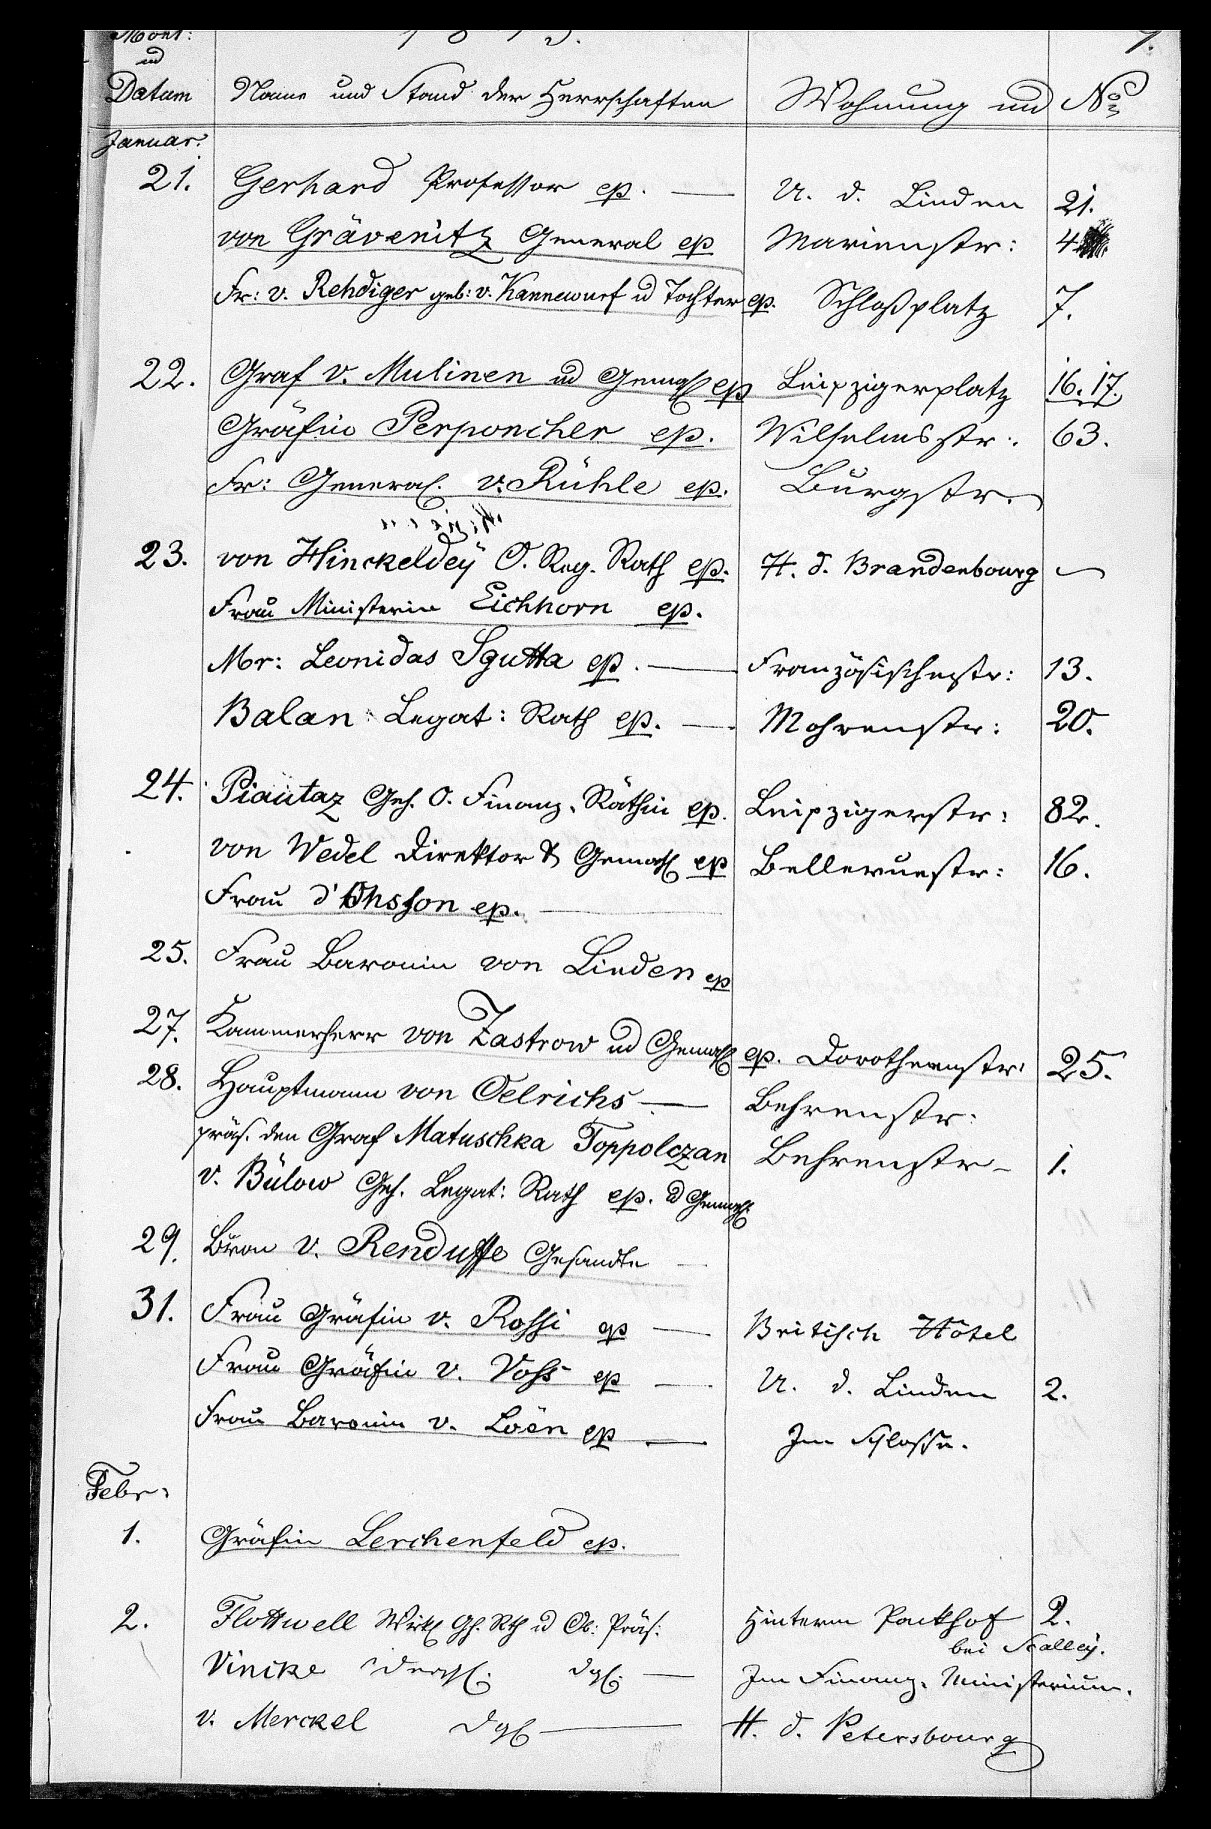 Mont:
ud
Datum Name und Stand der Herrschaften Wohnung und No
Januar.
21. Gerhard Professor ep. — U. d. Linden 21.
von Grävenitz General ep Marienstr: 4
Fr: v. Rehdiger geb: v. Kannewurf ud Tochter ep. Schloßplatz 7.
22. Graf v. Mulinen ud Gemahl ep Leipzigerplatz 16. 17.
Gräfin Perponcher ep. Wilhelmsstr. 63.
Fr: General. v. Rühle ep. Burgstr.
23. von Hinckeldeÿ O. Reg. Rath ep. H. d. Brandenbourg —
Frau Ministerin Eichhorn ep.
Mr: Leonidas Sgutta ep. — Französischestr: 13.
Balan Legat: Rath ep. — Mohrenstr: 20.
24. Piautaz Geh. O. Finanz. Räthin ep. Leipzigerstr: 82.
von Wedel Direktor & Gemahl ep Bellevuestr: 16.
Frau d'Ohsson ep. —
25. Frau Baronin von Linden ep
27. Kammerherr von Zastrow ud Gemahl ep. Dorotheenstr: 25.
28. Hauptmann von Oelrichs — Behrenstr:
präs. den Graf Matuschka Toppolczan Behrenstr — 1.
v. Bülow Geh. Legat: Rath ep. d Gemahl
29. Bron v. Renduffe Gesandte —
31. Frau Gräfin v. Rossi ep — Britisch Hôtel
Frau Gräfin v. Voss ep — U. d. Linden 2.
Frau Baronin v. Loën ep — Im Schlosse.
Febr:
1. Gräfin Lerchenfeld ep.
2. Flottwell Wirkl Gh. Rth ud Ob: Präs: Hinterm Packhof 2.
bei Scalley.
Vincke dergl. dgl. — Im Finanz. Ministerium.
v. Merckel dgl — H. d. Petersbourg